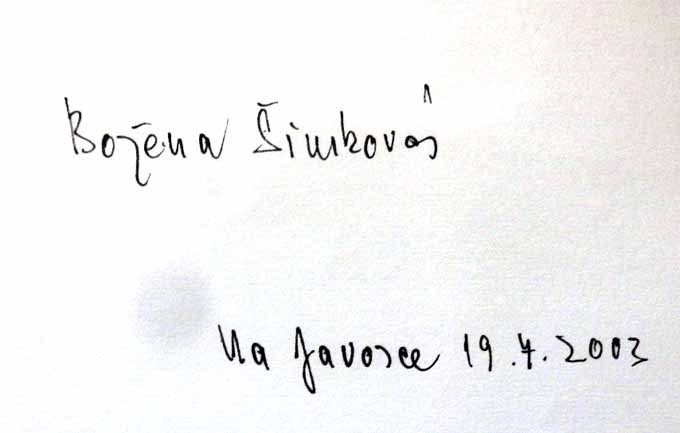 Božena Šimková
Na Javorce 19.4.2003